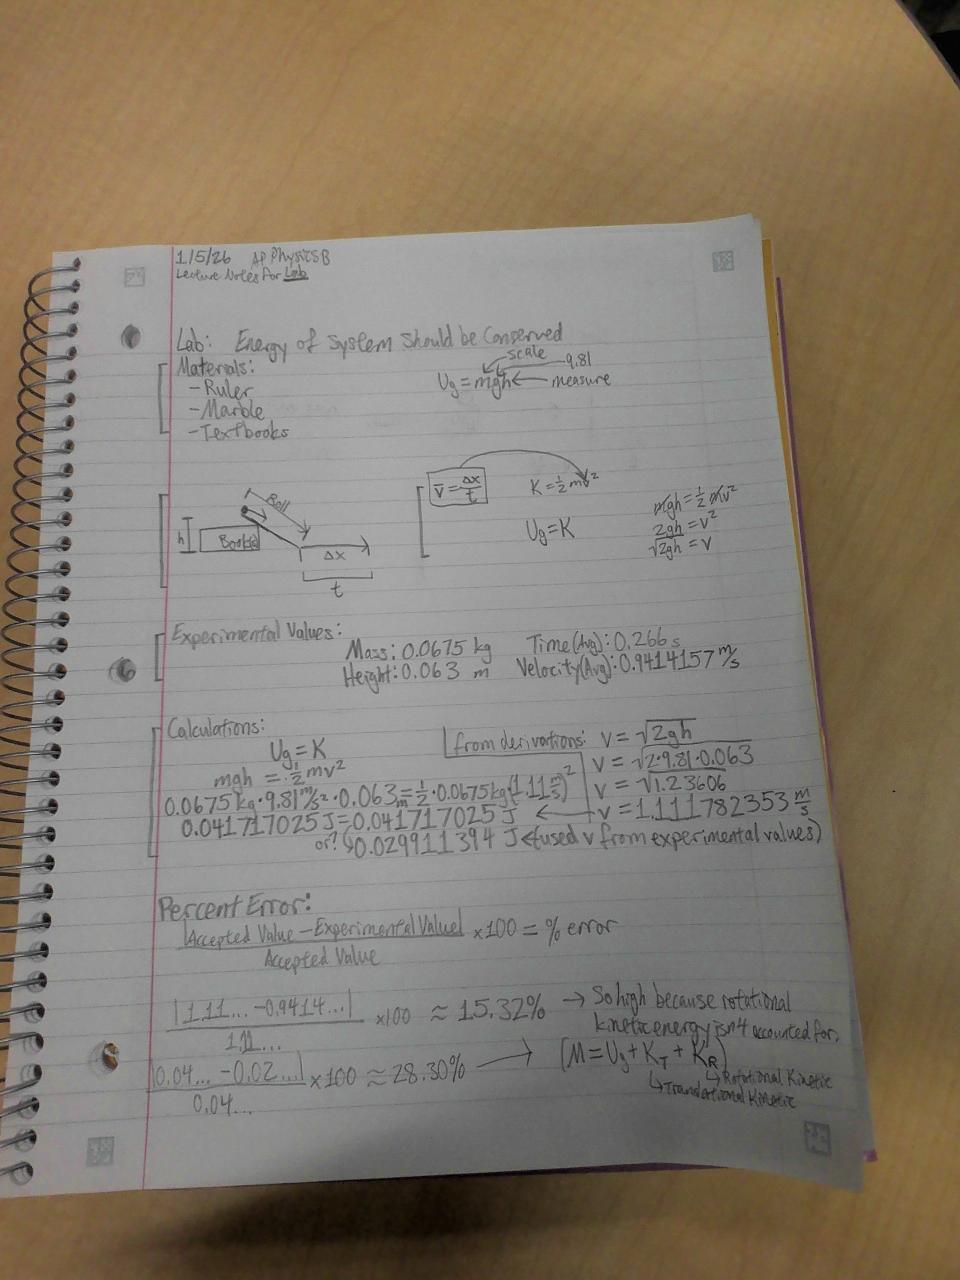 1/5/26 AP Physics B
Lecture Notes for Lab
Lab: Energy of System Should be Conserved
Materials:
- Ruler
- Marble
- Textbooks
scale
9.81
Ug = mgh ← measure
Roll
h
Books
Δx
t
v̄ = Δx/t
K = ½mv²
Ug = K
mgh = ½mv²
2gh = v²
√2gh = v
Experimental Values:
Mass: 0.0675 kg Time(Avg): 0.266 s
Height: 0.063 m Velocity(Avg): 0.9414157 m/s
Calculations:
Ug = K
mgh = ½mv²
0.0675 kg · 9.81 m/s² · 0.063 m = ½ · 0.0675 kg (1.11 m/s)²
0.041717025 J = 0.041717025 J ←
or? (0.029911394 J ← (used v from experimental values)
from derivations: v = √2gh
v = √2·9.81·0.063
v = √1.23606
v = 1.111782353 m/s
Percent Error:
|Accepted Value - Experimental Value| / Accepted Value × 100 = % error
|1.11... - 0.9414...| / 1.11... × 100 ≈ 15.32% → So high because rotational
kinetic energy isn't accounted for.
|0.04... - 0.02...| / 0.04... × 100 ≈ 28.30% → (M = Ug + KT + KR)
↳ Rotational Kinetic
↳ Translational Kinetic